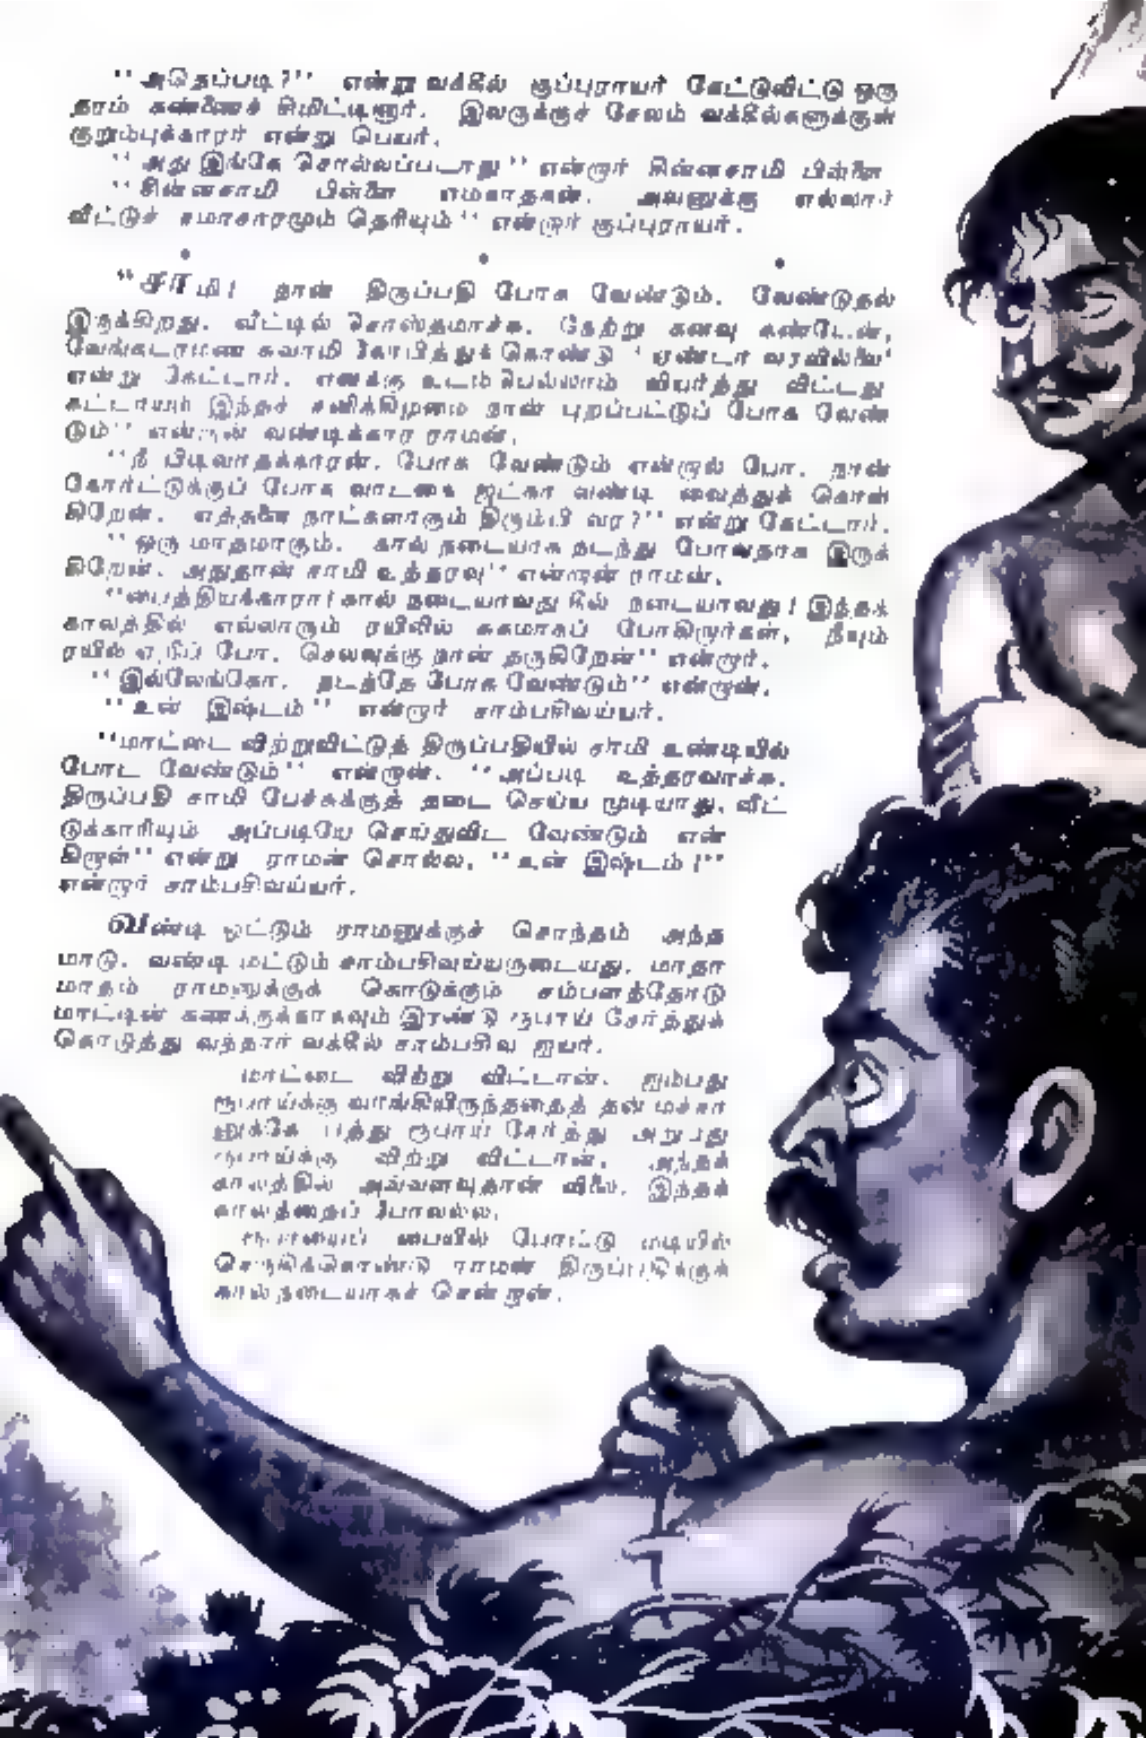 "அதெப்படி?" என்று வக்கில் குப்புராயர் கேட்டுவிட்டு ஒரு
தரம் கண்ணைச் சிமிட்டினார். இவருக்குச் சேலம் வக்கில்களுக்குள்
குறும்புக்காரர் என்று பெயர்.
"அது இங்கே சொல்லப்படாது" என்றார் சின்னசாமி பிள்ளை
"சின்னசாமி பிள்ளை எமகாதகன். அவனுக்கு எல்லார்
வீட்டுச் சமாசாரமும் தெரியும்" என்றார் குப்புராயர்.
• • •
"சாமி! நான் திருப்பதி போக வேண்டும். வேண்டுதல்
இருக்கிறது. வீட்டில் சொஸ்தமாச்சு. நேற்று கனவு கண்டேன்,
வேங்கடரமண சுவாமி கோபித்துக் கொண்டு 'ஏண்டா வரவில்லை'
என்று கேட்டார். எனக்கு உடம்பெல்லாம் வியர்த்து விட்டது
கட்டாயம் இந்தச் சனிக்கிழமை நான் புறப்பட்டுப் போக வேண்
டும்" என்றான் வண்டிக்கார ராமன்.
"நீ பிடிவாதக்காரன். போக வேண்டும் என்றால் போ. நான்
கோர்ட்டுக்குப் போக வாடகை ஜட்கா வண்டி வைத்துக் கொள்
கிறேன். எத்தனை நாட்களாகும் திரும்பி வர?" என்று கேட்டார்.
"ஒரு மாதமாகும். கால் நடையாக நடந்து போவதாக இருக்
கிறேன். அதுதான் சாமி உத்தரவு" என்றான் ராமன்.
"பைத்தியக்காரா! கால் நடையாவது கீல் நடையாவது! இந்தக்
காலத்தில் எல்லாரும் ரயிலில் சுகமாகப் போகிறார்கள், நீயும்
ரயில் ஏறிப் போ. செலவுக்கு நான் தருகிறேன்" என்றார்.
"இல்லேங்கோ. நடந்தே போக வேண்டும்" என்றான்.
"உன் இஷ்டம்" என்றார் சாம்பசிவய்யர்.
"மாட்டை விற்றுவிட்டுத் திருப்பதியில் சாமி உண்டியில்
போட வேண்டும்" என்றான். "அப்படி உத்தரவாச்சு.
திருப்பதி சாமி பேச்சுக்குத் தடை செய்ய முடியாது. வீட்
டுக்காரியும் அப்படியே செய்துவிட வேண்டும் என்
கிறாள்" என்று ராமன் சொல்ல, "உன் இஷ்டம்!"
என்றார் சாம்பசிவய்யர்.
வண்டி ஓட்டும் ராமனுக்குச் சொந்தம் அந்த
மாடு. வண்டி மட்டும் சாம்பசிவய்யருடையது. மாதா
மாதம் ராமனுக்குக் கொடுக்கும் சம்பளத்தோடு
மாட்டின் கணக்குக்காகவும் இரண்டு ரூபாய் சேர்த்துக்
கொடுத்து வந்தார் வக்கீல் சாம்பசிவ ஐயர்.
மாட்டை விற்று விட்டான். ஐம்பது
ரூபாய்க்கு வாங்கியிருந்ததைத் தன் மச்சா
னுக்கே பத்து ரூபாய் சேர்த்து அறுபது
ரூபாய்க்கு விற்று விட்டான். அந்தக்
காலத்தில் அவ்வளவுதான் விலை. இந்தக்
காலத்தைப் போலல்ல.
ரூபாயைப் பையில் போட்டு மடியில்
செருகிக்கொண்டு ராமன் திருப்பதிக்குக்
கால்நடையாகச் சென்றான்.